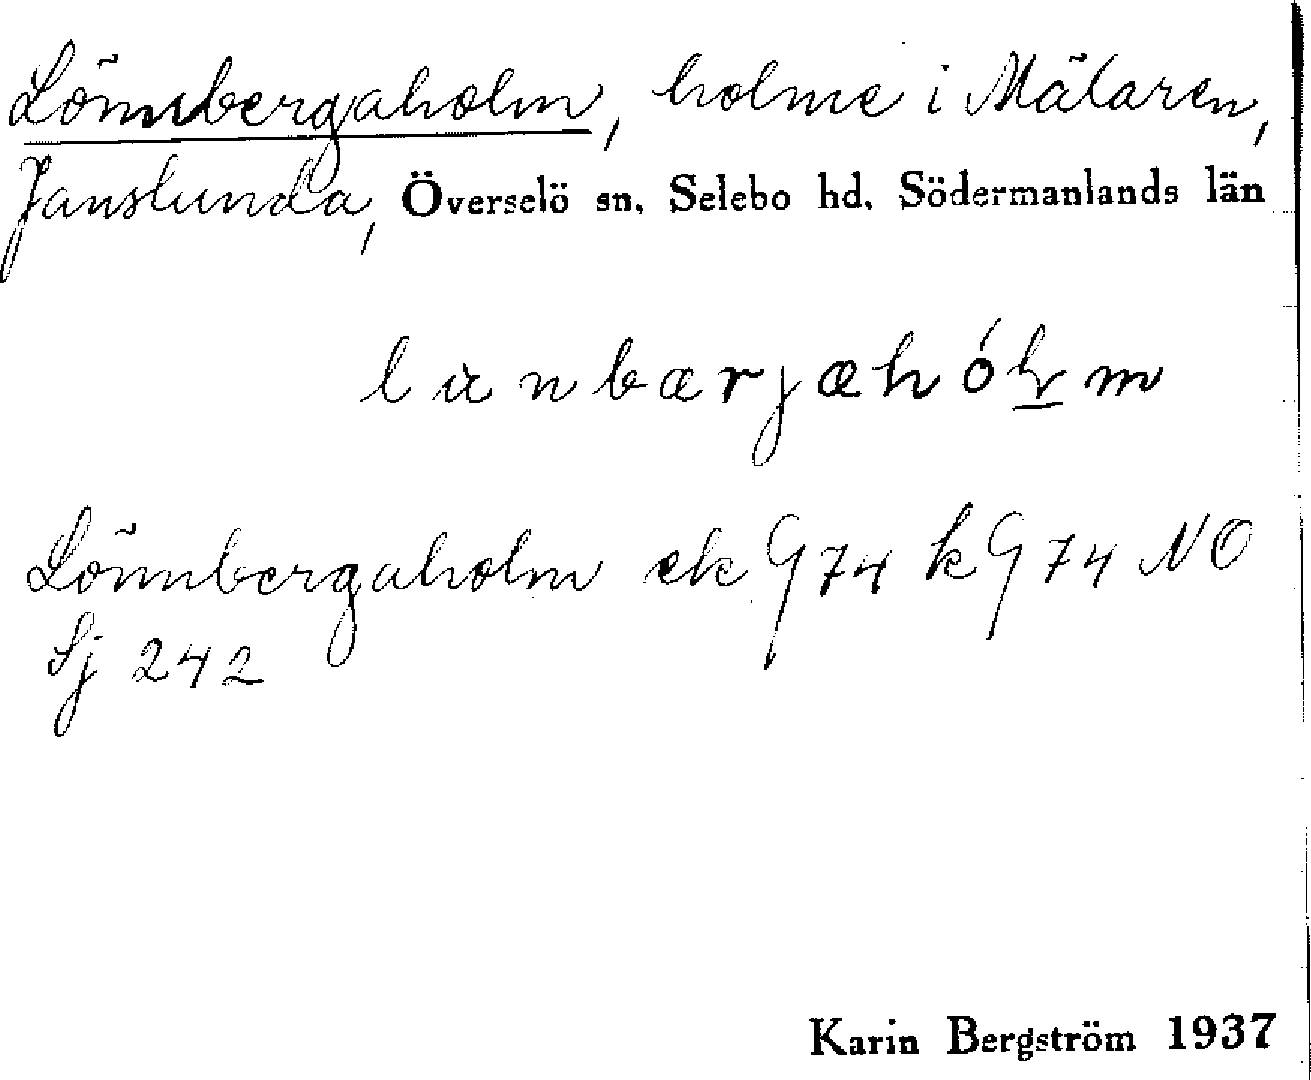 Lönnbergaholm, holme i Mälaren,
Janslunda, Överselö sn, Selebo hd, Södermanlands län
Lönnbergaholm ek G74 k G74 NO
Sj 242
Karin Bergström 1937